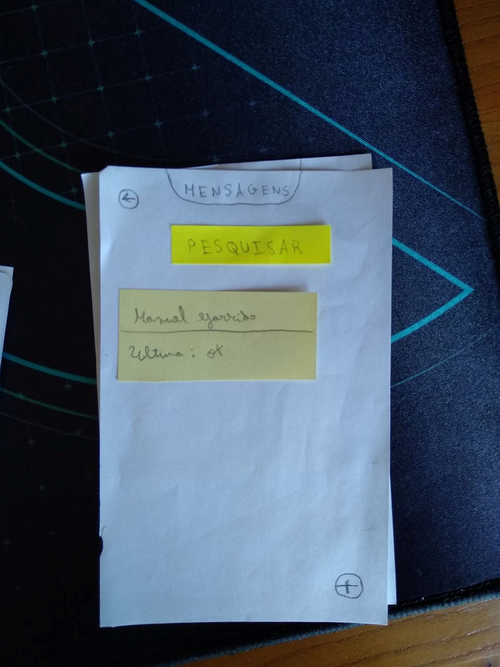 MENSAGENS
PESQUISAR
Manuel Garrido
Última: ok